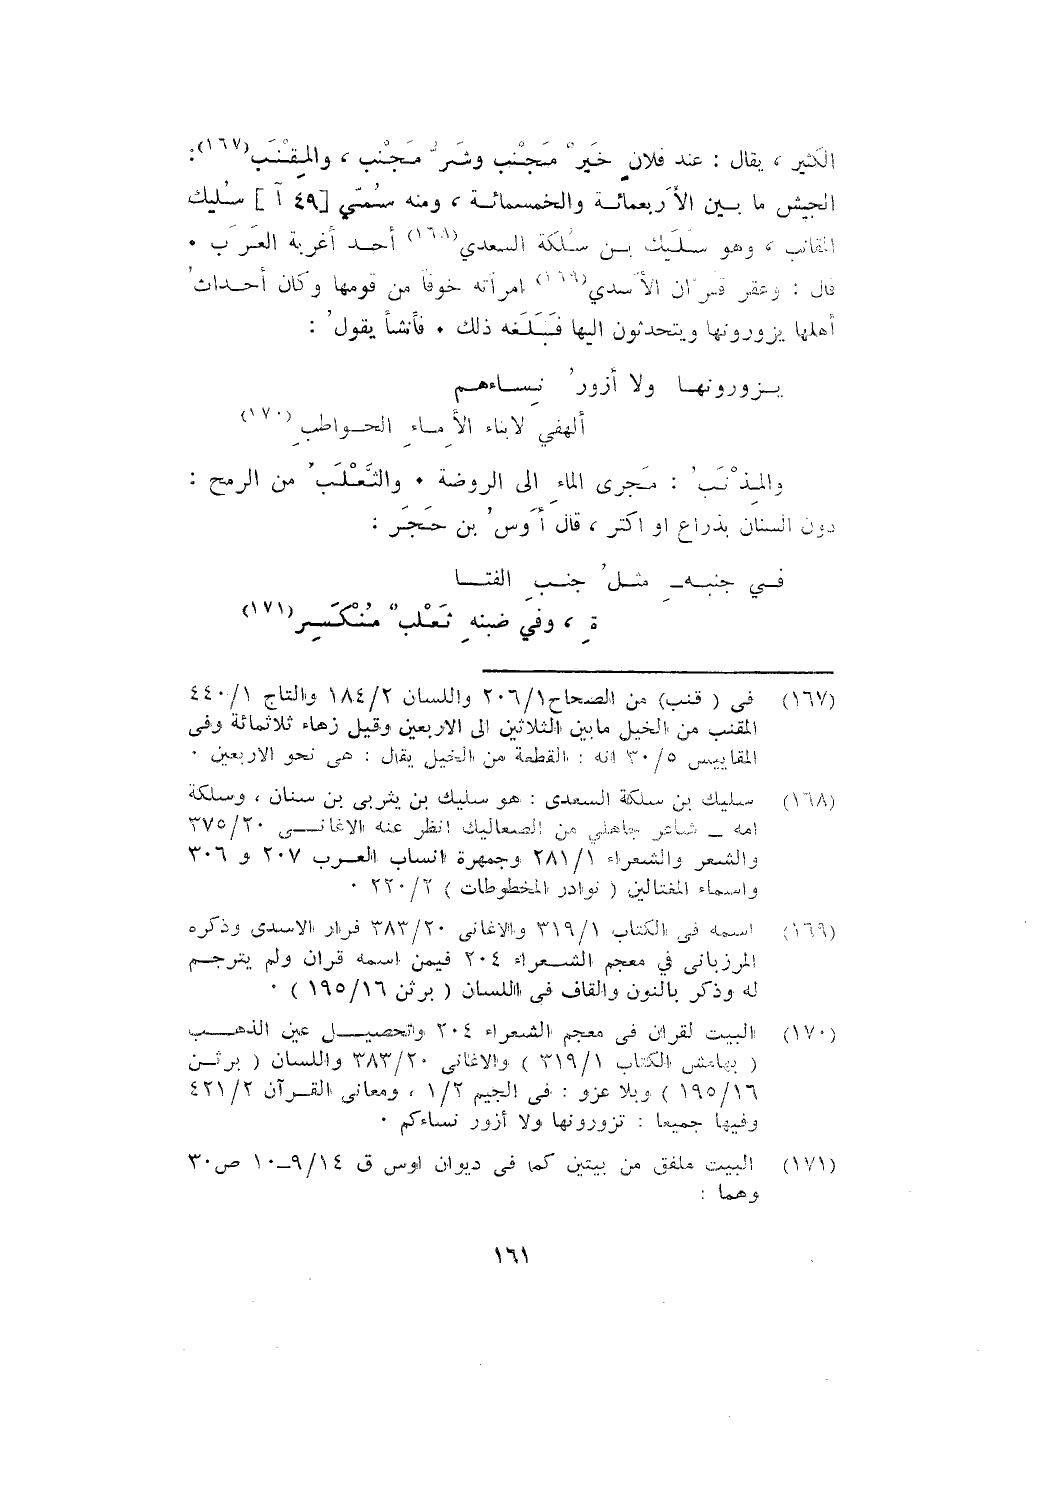 الكثير ، يقال : عند فلانٍ خَيرْ مَجنْب وشَرّ مَجنْب ، والمِقنْب(١٦٧):
الجيش ما بين الأربعمائة والخمسمائة ، ومنه سُمّي [٤٩ آ] سُليك
المقانب ، وهو سُلَيك بن سُلكة السعدي(١٦٨) أحد أغربة العَرَب ٠
قال : وعقر قُرّان الأسدي(١٦٩) امرأته خوفاً من قومها وكان أحداثُ
أهلها يزورونها ويتحدثون اليها فَبَلَغه ذلك ٠ فأنشأ يقولُ :
يزورونها ولا أزورُ نِساءهم
ألهفي لابناء الأِماءِ الحواطبِ(١٧٠)
والمِذْنَبُ : مَجرى الماءِ الى الروضة ٠ والثَّعْلَبُ من الرمح :
دون السنان بذراع او اكثر ، قال أَوسُ بن حَجَر :
في جنبهِ مثلُ جنبِ الفتا
ةِ ، وفي ضبنهِ ثَعْلبٌ مُنْكَسِر(١٧١)
(١٦٧) في ( قنب) من الصحاح ٢٠٦/١ واللسان ١٨٤/٢ والتاج ٤٤٠/١
المقنب من الخيل مابين الثلاثين الى الاربعين وقيل زهاء ثلاثمائة وفى
المقاييس ٣٠/٥ انه : القطعة من الخيل يقال : هى نحو الاربعين ٠
(١٦٨) سليك بن سلكة السعدى : هو سليك بن يثربى بن سنان ، وسلكة
امه – شاعر جاهلي من الصعاليك انظر عنه الاغانى ٣٧٥/٢٠
والشعر والشعراء ٢٨١/١ وجمهرة انساب العرب ٢٠٧ و ٣٠٦
واسماء المغتالين ( نوادر المخطوطات ) ٢٢٠/٢ ٠
(١٦٩) اسمه فى الكتاب ٣١٩/١ والاغانى ٣٨٣/٢٠ فرار الاسدى وذكره
المرزبانى في معجم الشعراء ٢٠٤ فيمن اسمه قران ولم يترجم
له وذكر بالنون والقاف فى اللسان ( برثن ١٩٥/١٦ ) ٠
(١٧٠) البيت لقران فى معجم الشعراء ٢٠٤ وتحصيل عين الذهب
( بهامش الكتاب ٣١٩/١ ) والاغانى ٣٨٣/٢٠ واللسان ( برثن
١٩٥/١٦ ) وبلا عزو : فى الجيم ١/٢ ، ومعانى القرآن ٤٢١/٢
وفيها جميعا : تزورونها ولا أزور نساءكم ٠
(١٧١) البيت ملفق من بيتين كما فى ديوان اوس ق ٩/١٤–١٠ ص٣٠
وهما :
١٦١